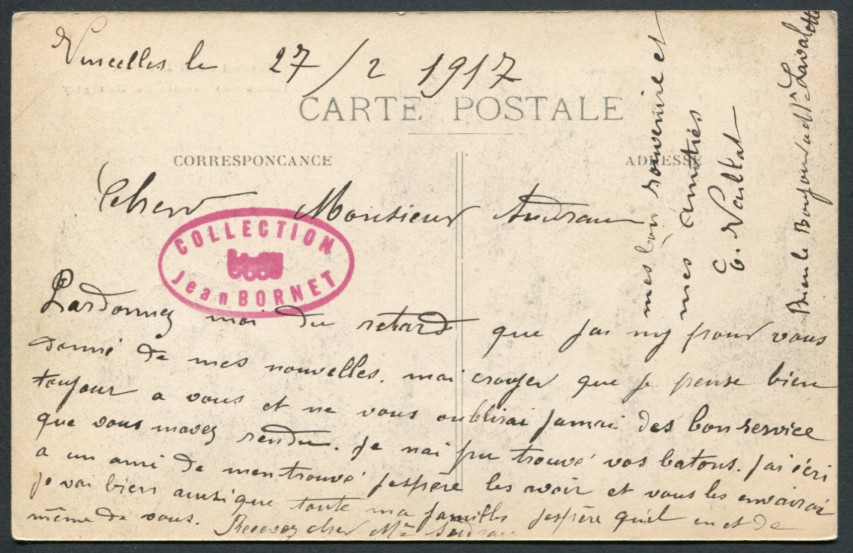 Vincelles le 27/2 1917
CARTE POSTALE
CORRESPONCANCE
ADRESSE
Cher Monsieur Audrau
COLLECTION
Jean BORNET
Pardonnez moi du retard que jai my pour vous
donné de mes nouvelles. mai croyer que je pense bien
toujour a vous et ne vous oublirai jamai des bon service
que vous mavez rendu. Je nai pu trouvé vos batons. jai écri
a un ami de men trouvé jespère les avoir et vous les envairai
je vai bien ainsi que toute ma familles jespère quil en et de
même de vous. Recevez cher Mr
mes bon souvenire et
mes amitiés
G. Vaillat
Bien le Bonjour a Mr Lavalotte